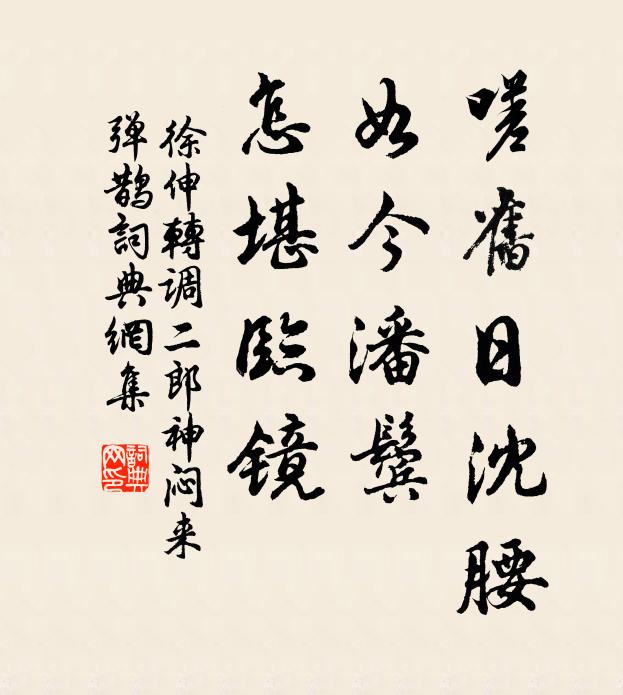 嗟舊日沈腰
如今潘鬢
怎堪臨鏡
徐伸轉调二郎神闷来
弹鹊詞典網集
詞典网印